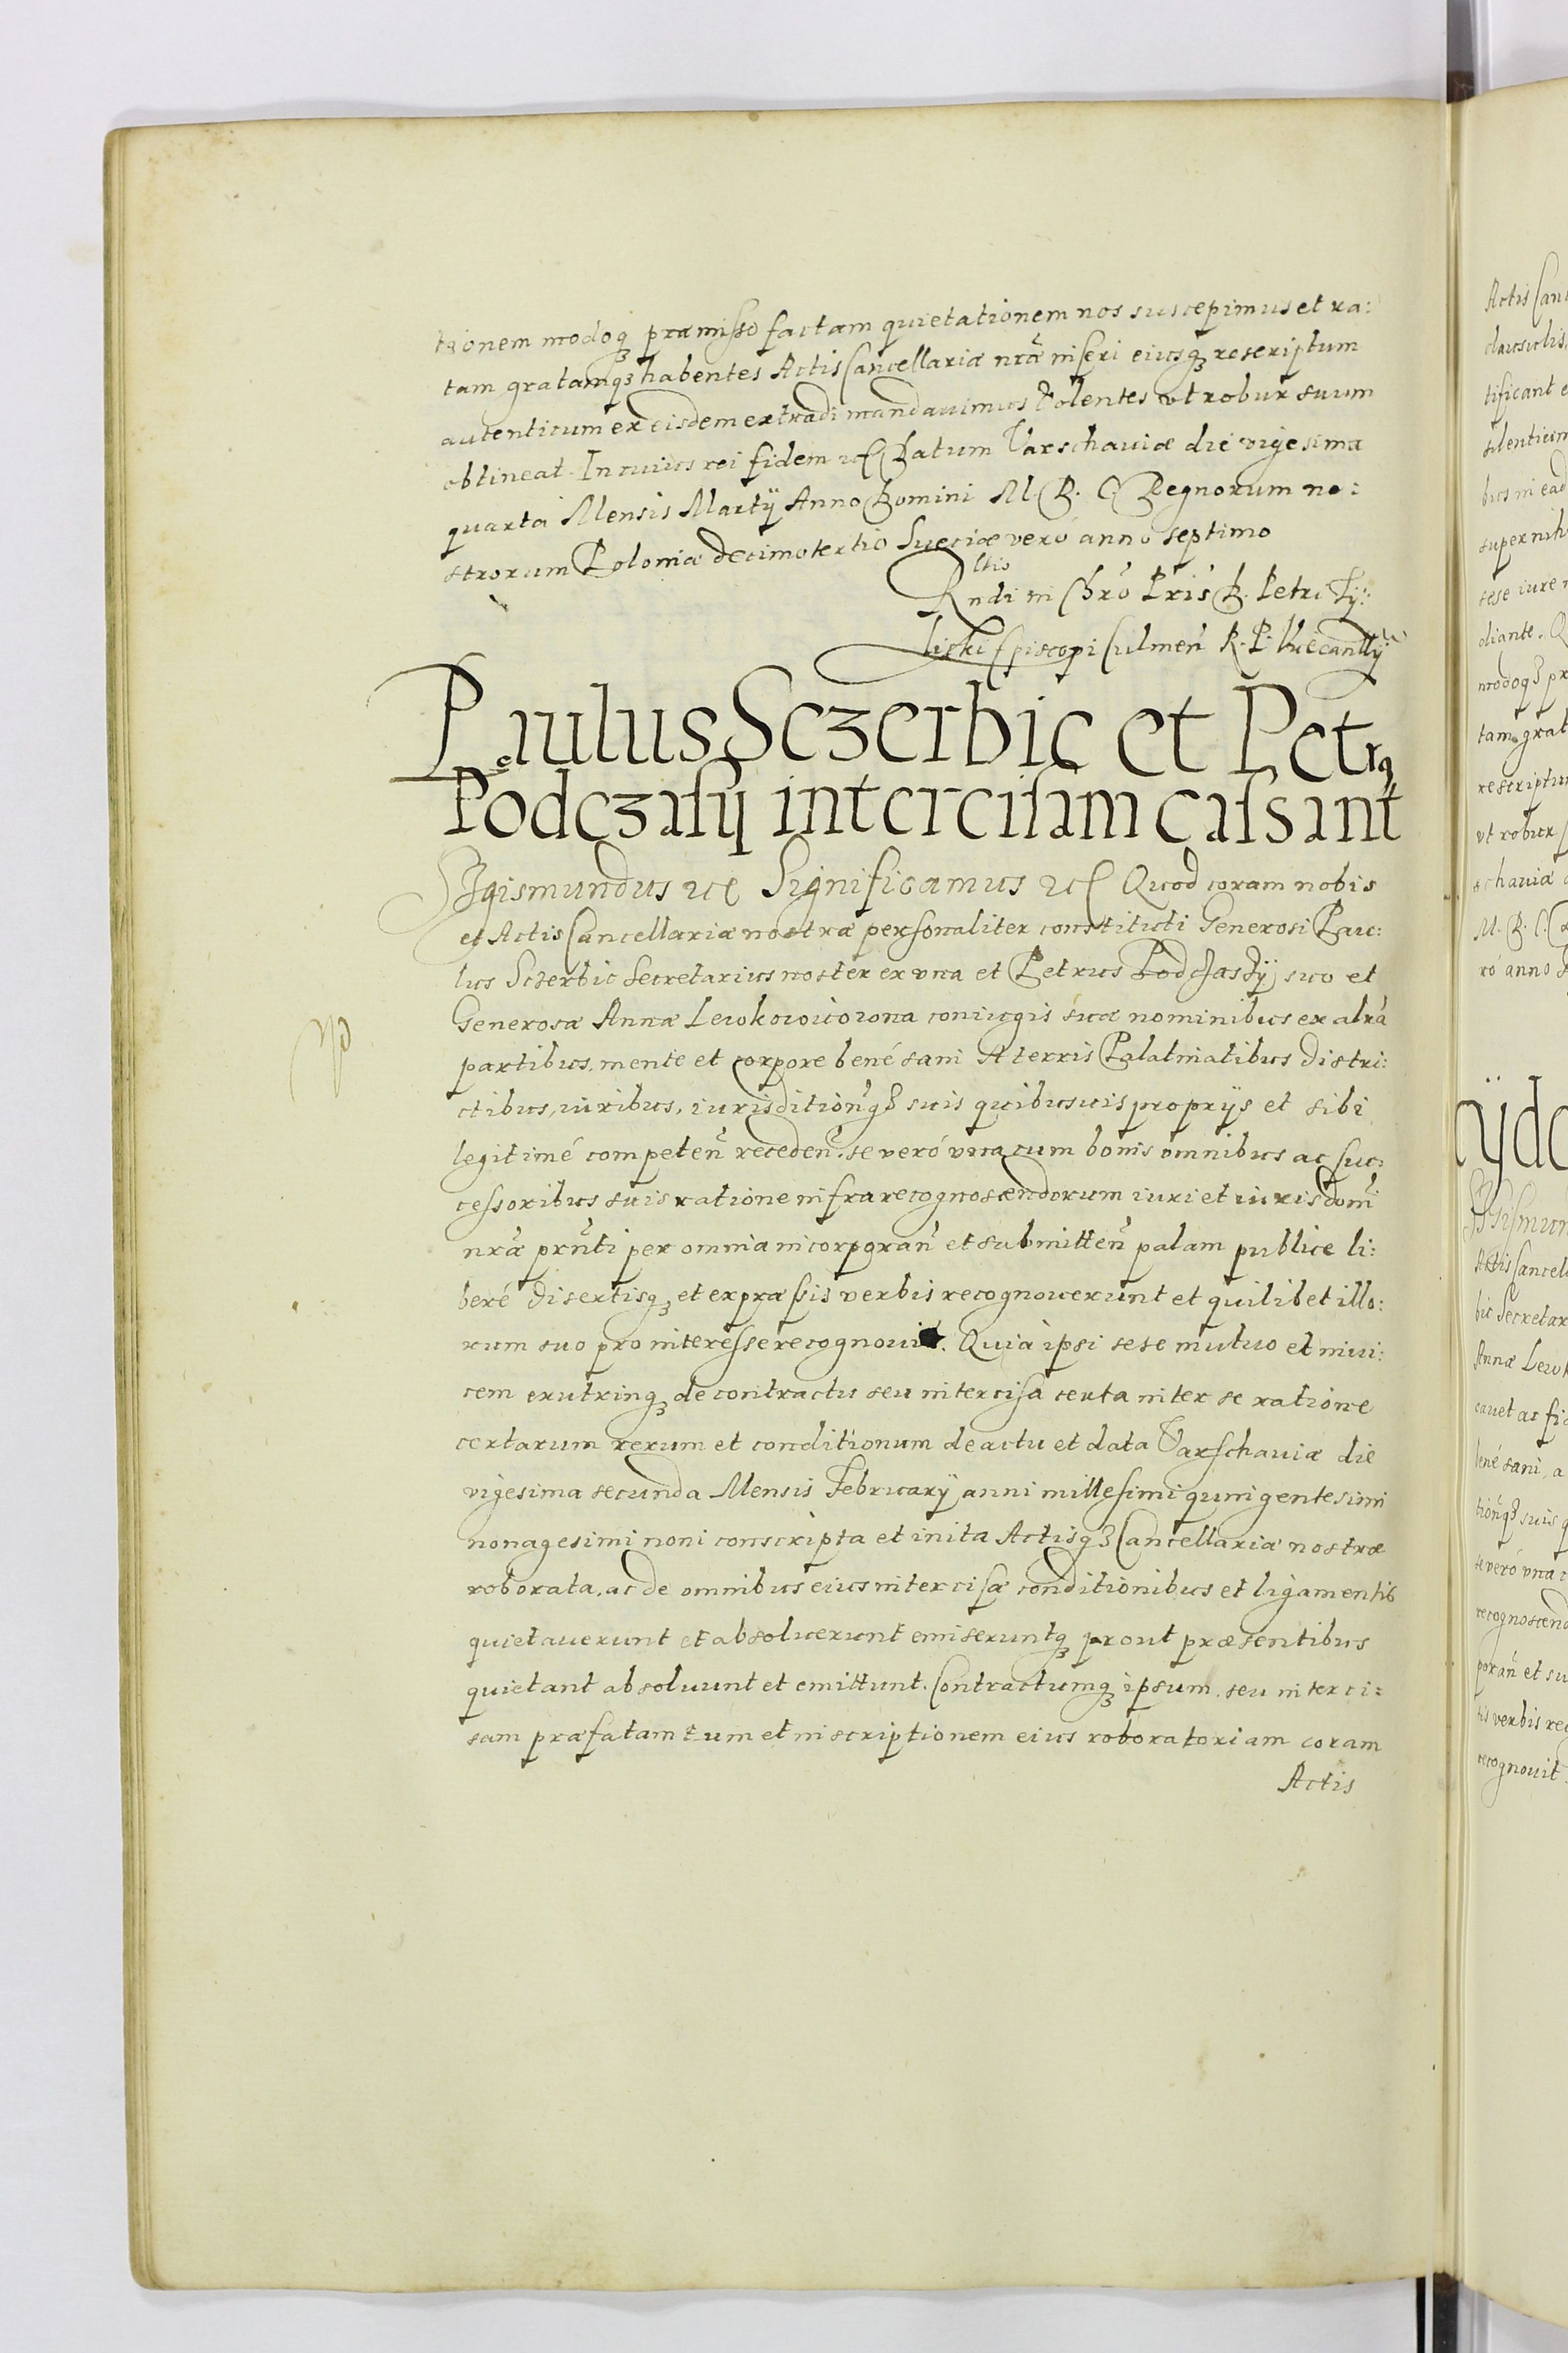 tionem modoq₃ præmisso factam quietationem nos suscepimus et ra:
tam gratamq₃ habentes Actis Cancellariæ nr̃æ inseri eiusq₃ rescriptum
autenticum ex eisdem extradi mandauimus Volentes vt robur suum
obtineat. In cuius rei fidem etc Datum Varschauiæ die vigesima
quarta Mensis Martÿ Anno Domini M. D. C. Regnorum no:
strorum Poloniæ decimotertio Sueciæ verò anno septimo
Rndi in Chrõ Pris D. Petri Ty:
licki Episcopi Culmeñ R. P. Vicecanllÿ
Paulus Sczerbic et Petrꝰ
Podczasÿ intercisam cassant
SJgismundus etc Significamus etc Quod coram nobis
et Actis Cancellariæ nostræ personaliter constituti Generosi Pau:
lus Sczerbic Secretarius noster ex vna et Petrus Podczasÿ suo et
Generosæ Annæ Lewkowicowna coniugis suæ nominibus ex altra
partibus, mente et corpore bené sani A terris Palatinatibus Distri:
ctibus, iuribus, iurisditionq₃ suis quibusuis proprÿs et sibi
legitimé competeñ recedeñ. se veró vna cum bonis omnibus ac suc:
cessoribus suis ratione infrarecognoscendorum iuri et iurisdoni
nr̃æ prñti per omnia incorporañ et submitteñ palam publice li:
beré disertisq₃ et expræssis verbis recognouerunt et quilibet illo:
rum suo pro interesse recognouit. Quia ipsi sese mutuo et inui:
cem exutrinq₃ de contractu seu intercisa certa inter se ratione
certarum rerum et conditionum de actu et data Varschauiæ die
vigesima secunda Mensis Februarÿ anni millesimi quingentesimi
nonagesimi noni conscripta et inita Actisq₃ Cancellariæ nostræ
roborata, ac de omnibus eius intercisæ conditionibus et ligamentis
quietauerunt et absoluerunt emiseruntq₃ prout præsentibus
quietant absoluunt et emittunt. Contractumq₃ ipsum seu interci:
sam præfatam tum et inscriptionem eius roboratoriam coram
Actis